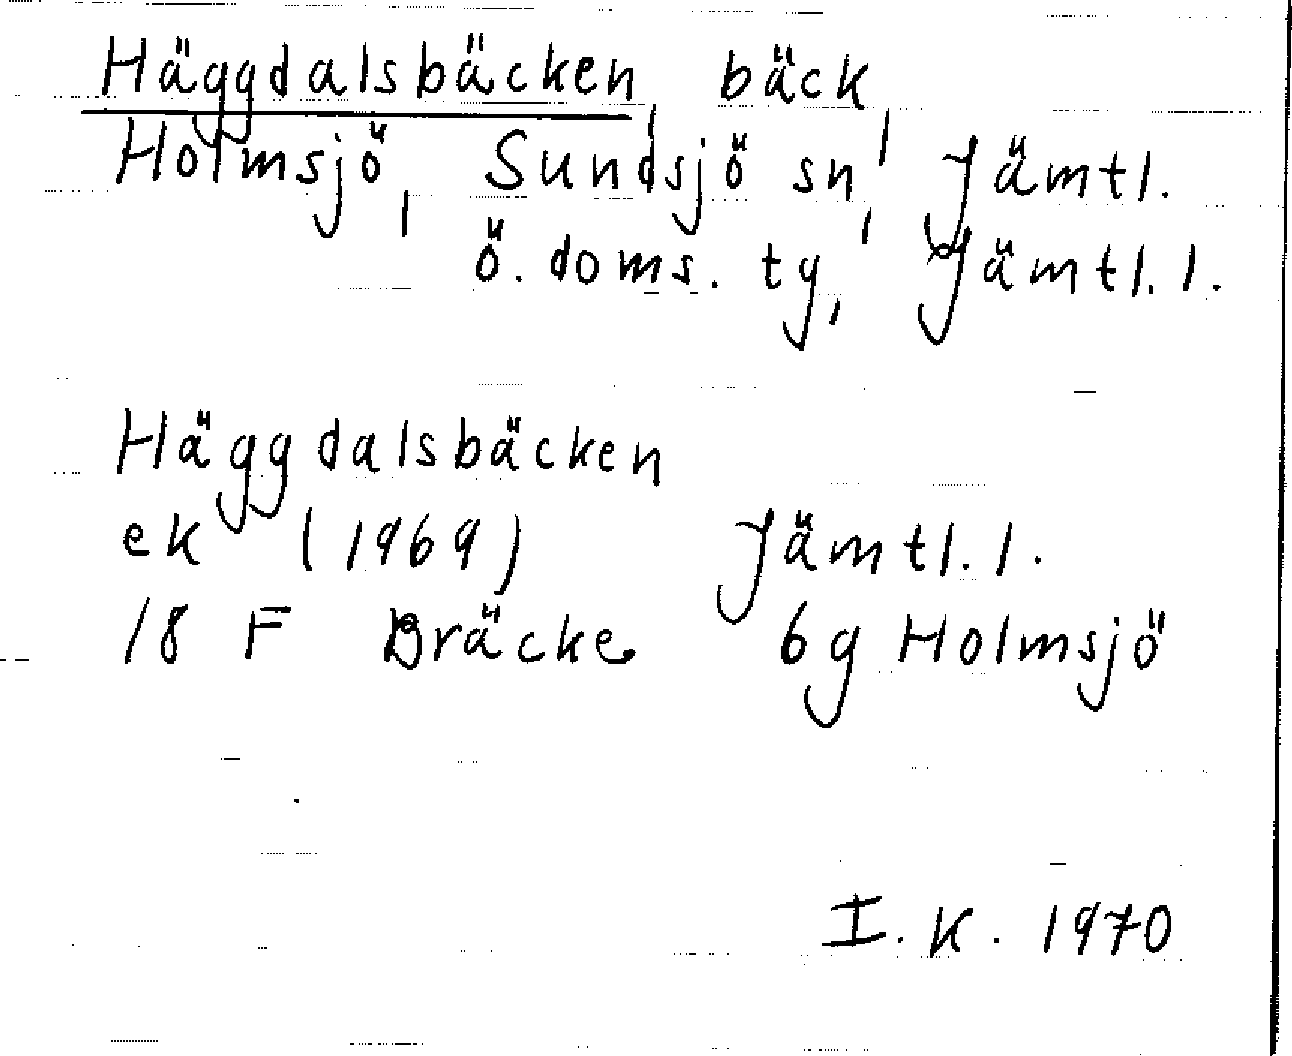 Häggdalsbäcken, bäck,
Holmsjö, Sundsjö sn, Jämtl.
ö. doms. tg, Jämtl. l.
Häggdalsbäcken
ek (1969) Jämtl. l.
18 F Bräcke 6g Holmsjö
I. K. 1970